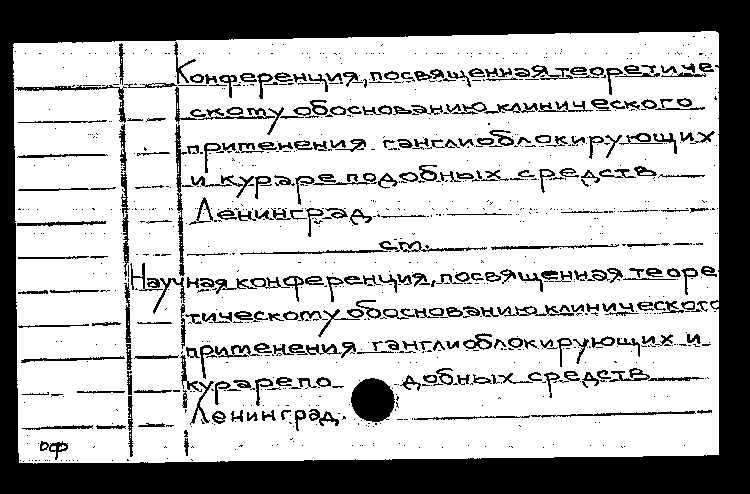 Конференция, посвященная теоретиче-
скому обоснованию клинического
применения ганглиоблокирующих
и курареподобных средств
Ленинград,
см.
Научная конференция, посвященная теоре-
тическому обоснованию клинического
применения ганглиоблокирующих и
курарепо добных средств
Ленинград.
оф